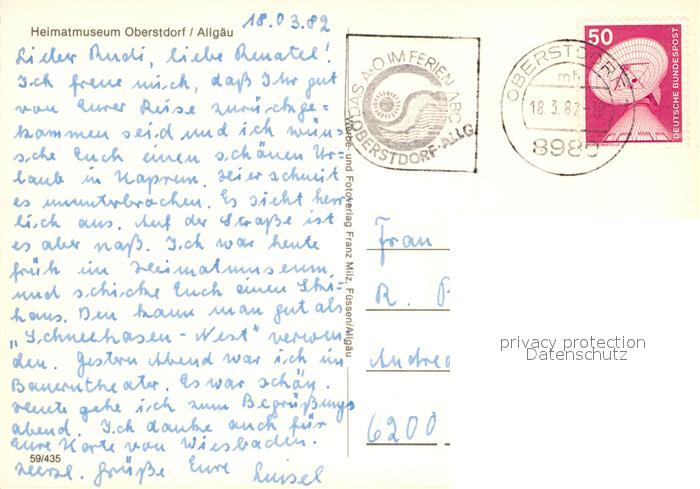 Heimatmuseum Oberstdorf / Allgäu
18.03.82
Lieber Rudi, liebe Renate!
Ich freue mich, daß Ihr gut
von Eurer Reise zurückge=
kommen seid und ich wün=
sche Euch einen schönen Ur=
laub in Kaprun. Hier schneit
es ununterbrochen. Es sieht herr
lich aus. Auf der Straße ist
es aber naß. Ich war heute
früh im Heimatmuseum
und schicke Euch einen Ski=
haus. Den kann man gut als
"Schneehasen-Nest" verwen
den. Gestern Abend war ich im
Bauerntheater. Es war schön.
Heute gehe ich zum Begrüßungs
abend. Ich danke auch für
Eure Karte von Wiesbaden.
Herzl. Grüße Eure Luisel
59/435
Werbe- und Fotoverlag Franz Milz, Füssen/Allgäu
DAS A·O IM FERIEN ABC
OBERSTDORF-ALLG.
OBERSTDORF
mh
18.3.82
8980
50
DEUTSCHE BUNDESPOST
Frau
R.
Andrea
6200
privacy protection
Datenschutz